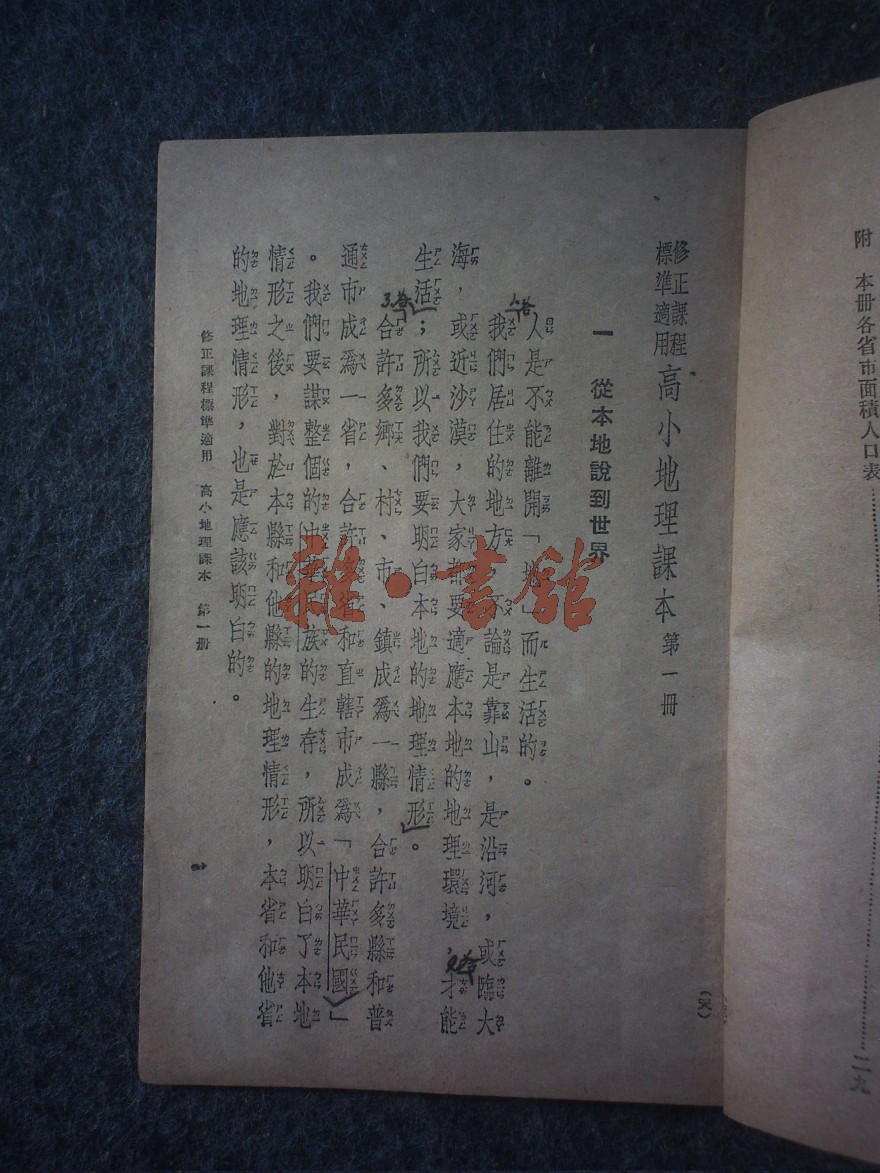 附　本冊各省市面積人口表……二九
修正課程
標準適用
高小地理課本 第一冊
一　從本地說到世界
人是不能離開「地」而生活的。
我們居住的地方，不論是靠山，是沿河，或臨大
海，或近沙漠，大家都要適應本地的地理環境，才能
生活；所以我們要明白本地的地理情形。
合許多鄉、村、市、鎮成爲一縣，合許多縣和普
通市成爲一省，合許多省和直轄市成爲「中華民國」
。我們要謀整個的中華民族的生存，所以明白了本地
情形之後，對於本縣和他縣的地理情形，本省和他省
的地理情形，也是應該明白的。
修正課程標準適用　高小地理課本　第一冊
雜·書館